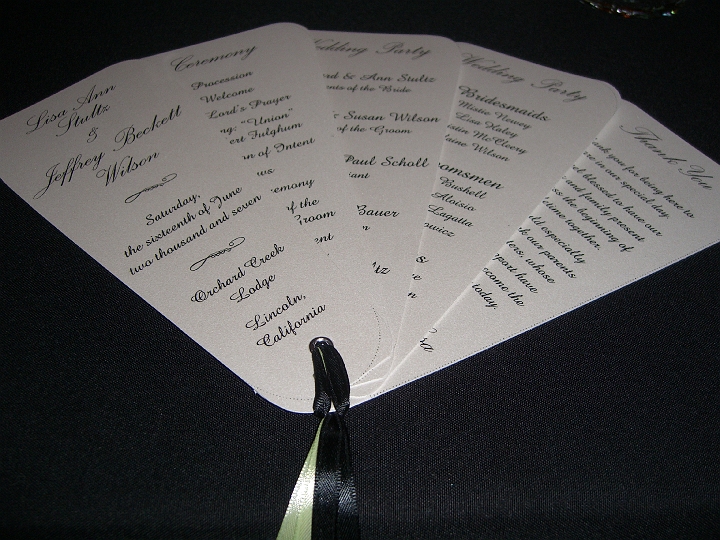 Lisa Ann
Stultz
&
Jeffrey Beckett
Wilson
Saturday,
the sixteenth of June
two thousand and seven
Orchard Creek
Lodge
Lincoln,
California
Ceremony
Procession
Welcome
Lord's Prayer
"Union"
Fulghum
of Intent
of the
Wedding Party
& Ann Stultz
of the Bride
Susan Wilson
of the Groom
Paul Scholl
Bauer
Wedding Party
Bridesmaids
Mistie Newey
Lisa Haley
McCleery
Wilson
Bushell
Aloisio
Lagatta
Thank You
you for being here to
in our special day.
blessed to have our
and family present
the beginning of
time together.
especially
our parents
whose
have
the
today.